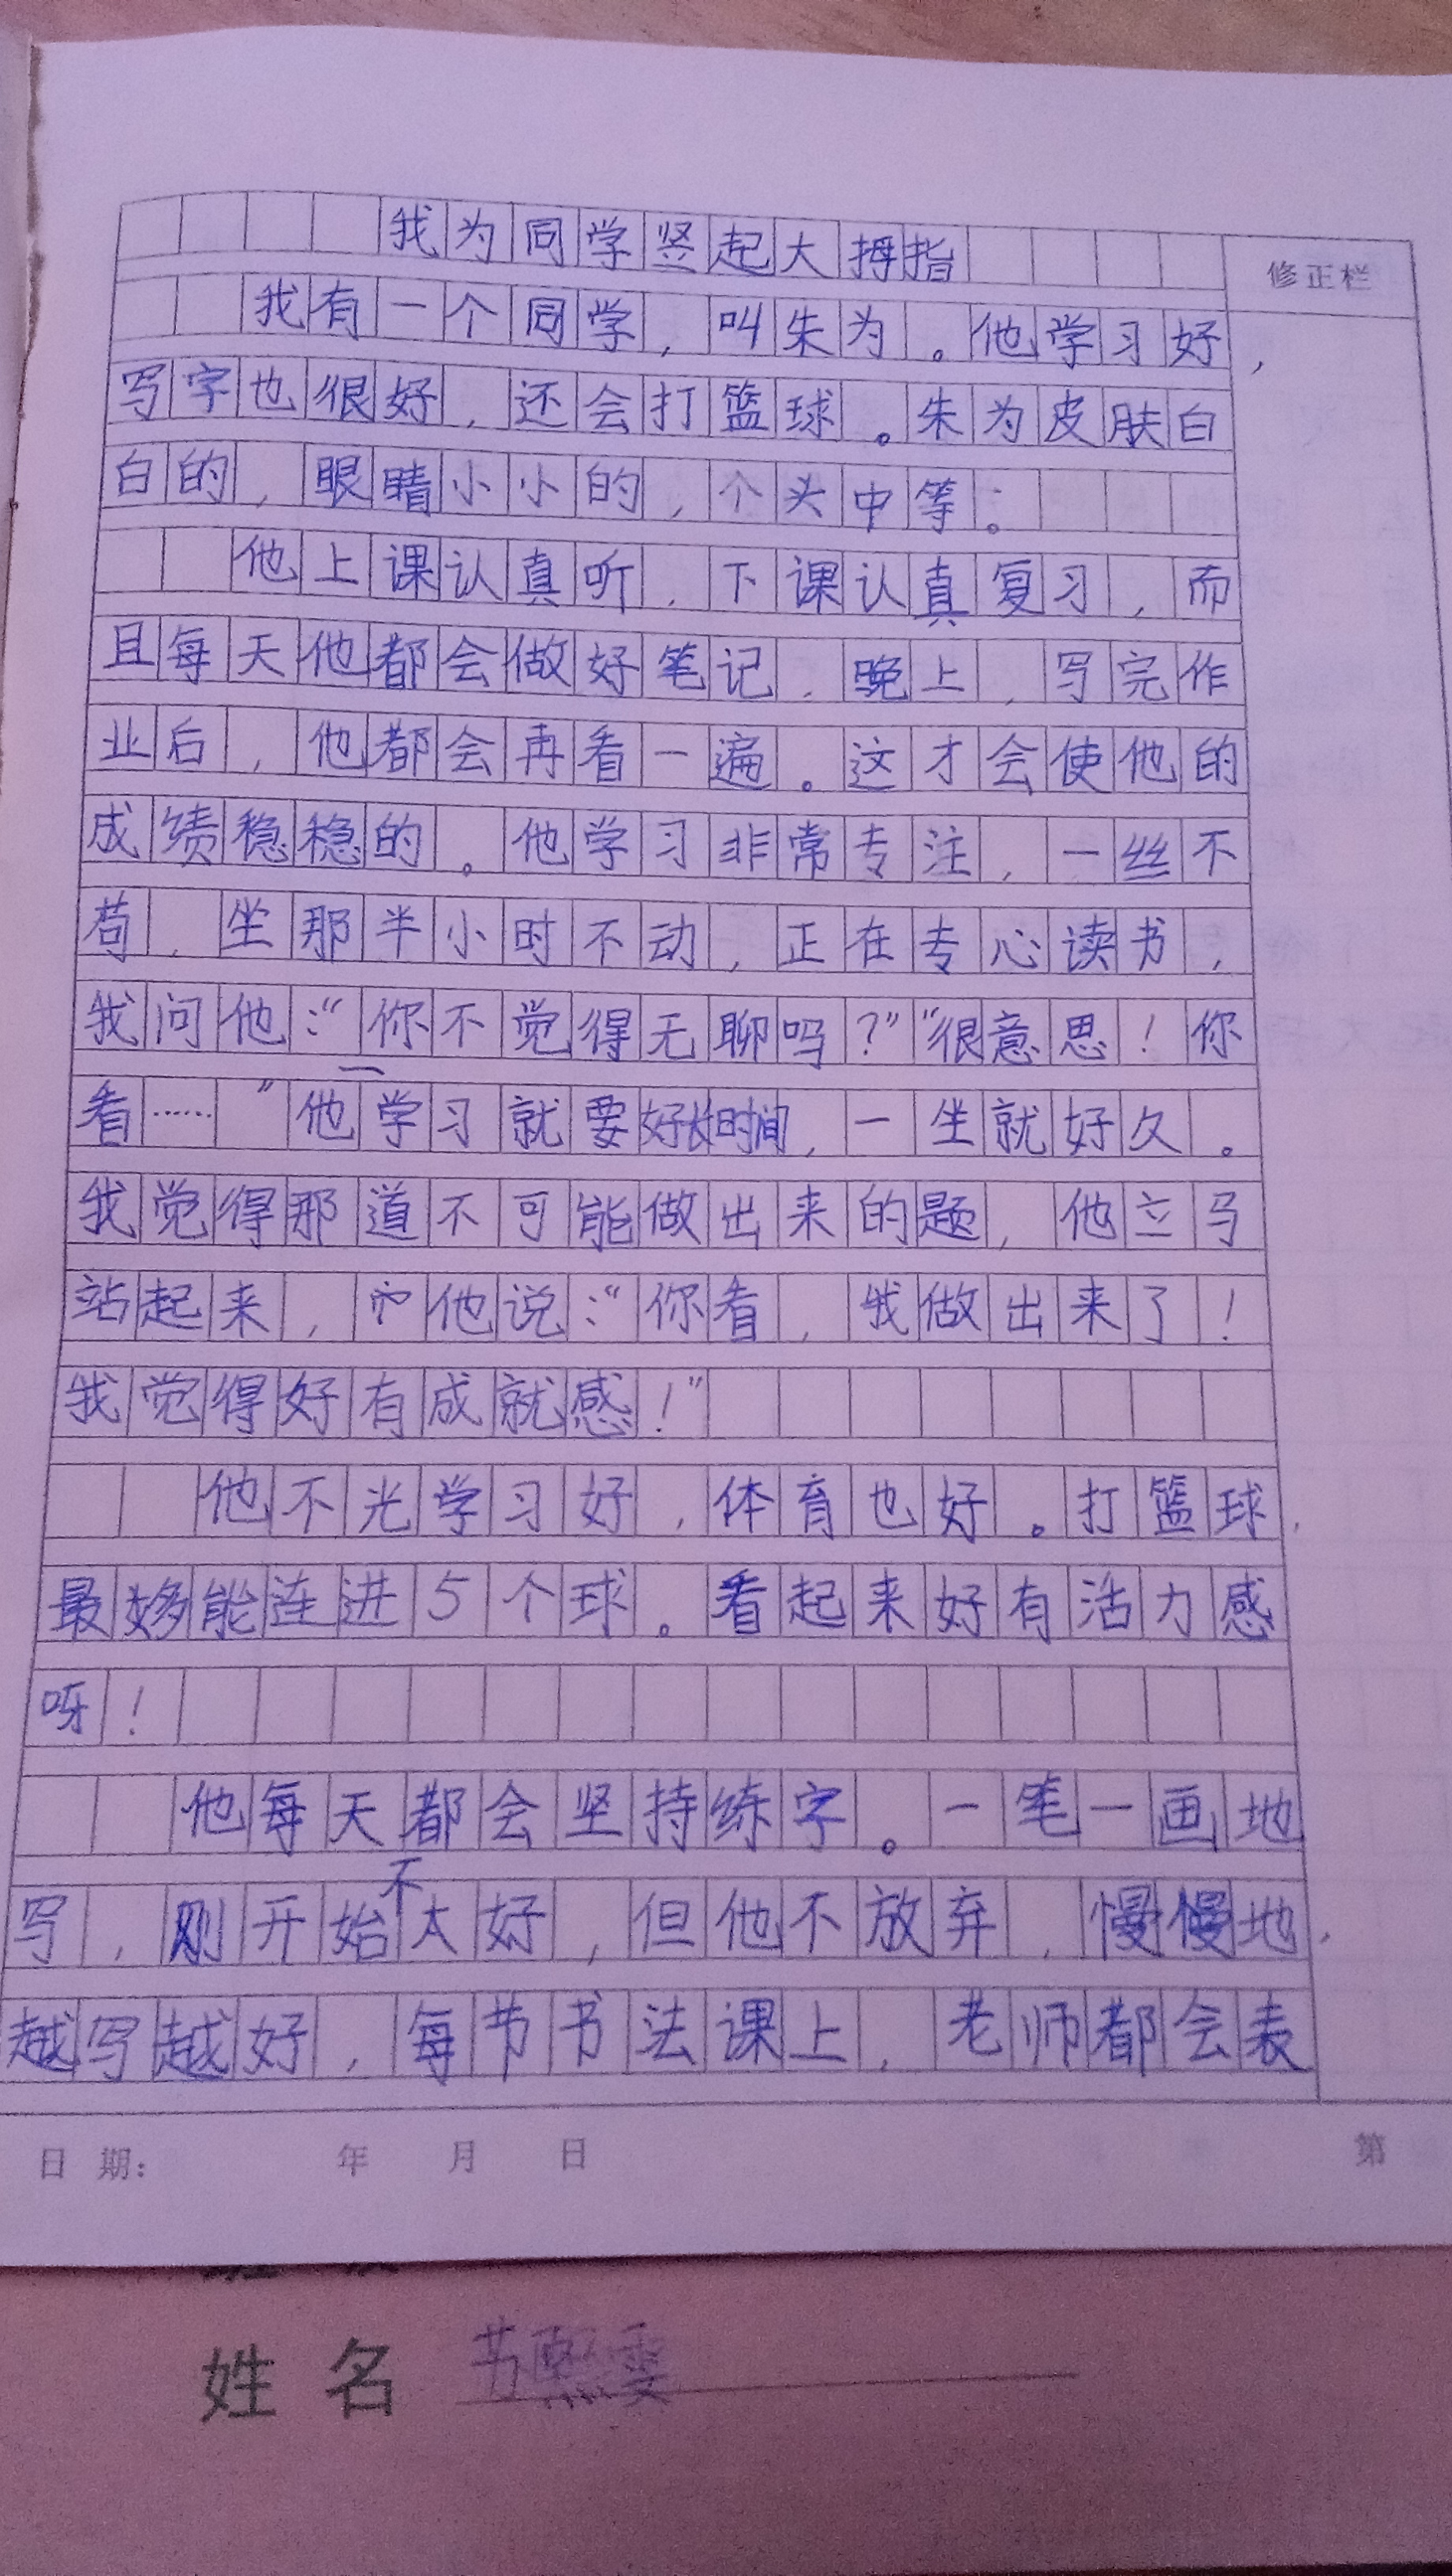 我为同学竖起大拇指
修正栏
我有一个同学，叫朱为。他学习好，
写字也很好，还会打篮球。朱为皮肤白
白的，眼睛小小的，个头中等。
他上课认真听，下课认真复习，而
且每天他都会做好笔记，晚上，写完作
业后，他都会再看一遍。这才会使他的
成绩稳稳的。他学习非常专注，一丝不
苟，坐那半小时不动，正在专心读书，
我问他：“你不觉得无聊吗？”“很意思！你
看……”他学习就要好长时间，一坐就好久。
我觉得那道不可能做出来的题，他立马
站起来，他说：“你看，我做出来了！
我觉得好有成就感！”
他不光学习好，体育也好。打篮球，
最多能连进5个球。看起来好有活力感
呀！
他每天都会坚持练字。一笔一画地
写，刚开始不太好，但他不放弃，慢慢地，
越写越好，每节书法课上，老师都会表
日期： 年 月 日 第
姓名